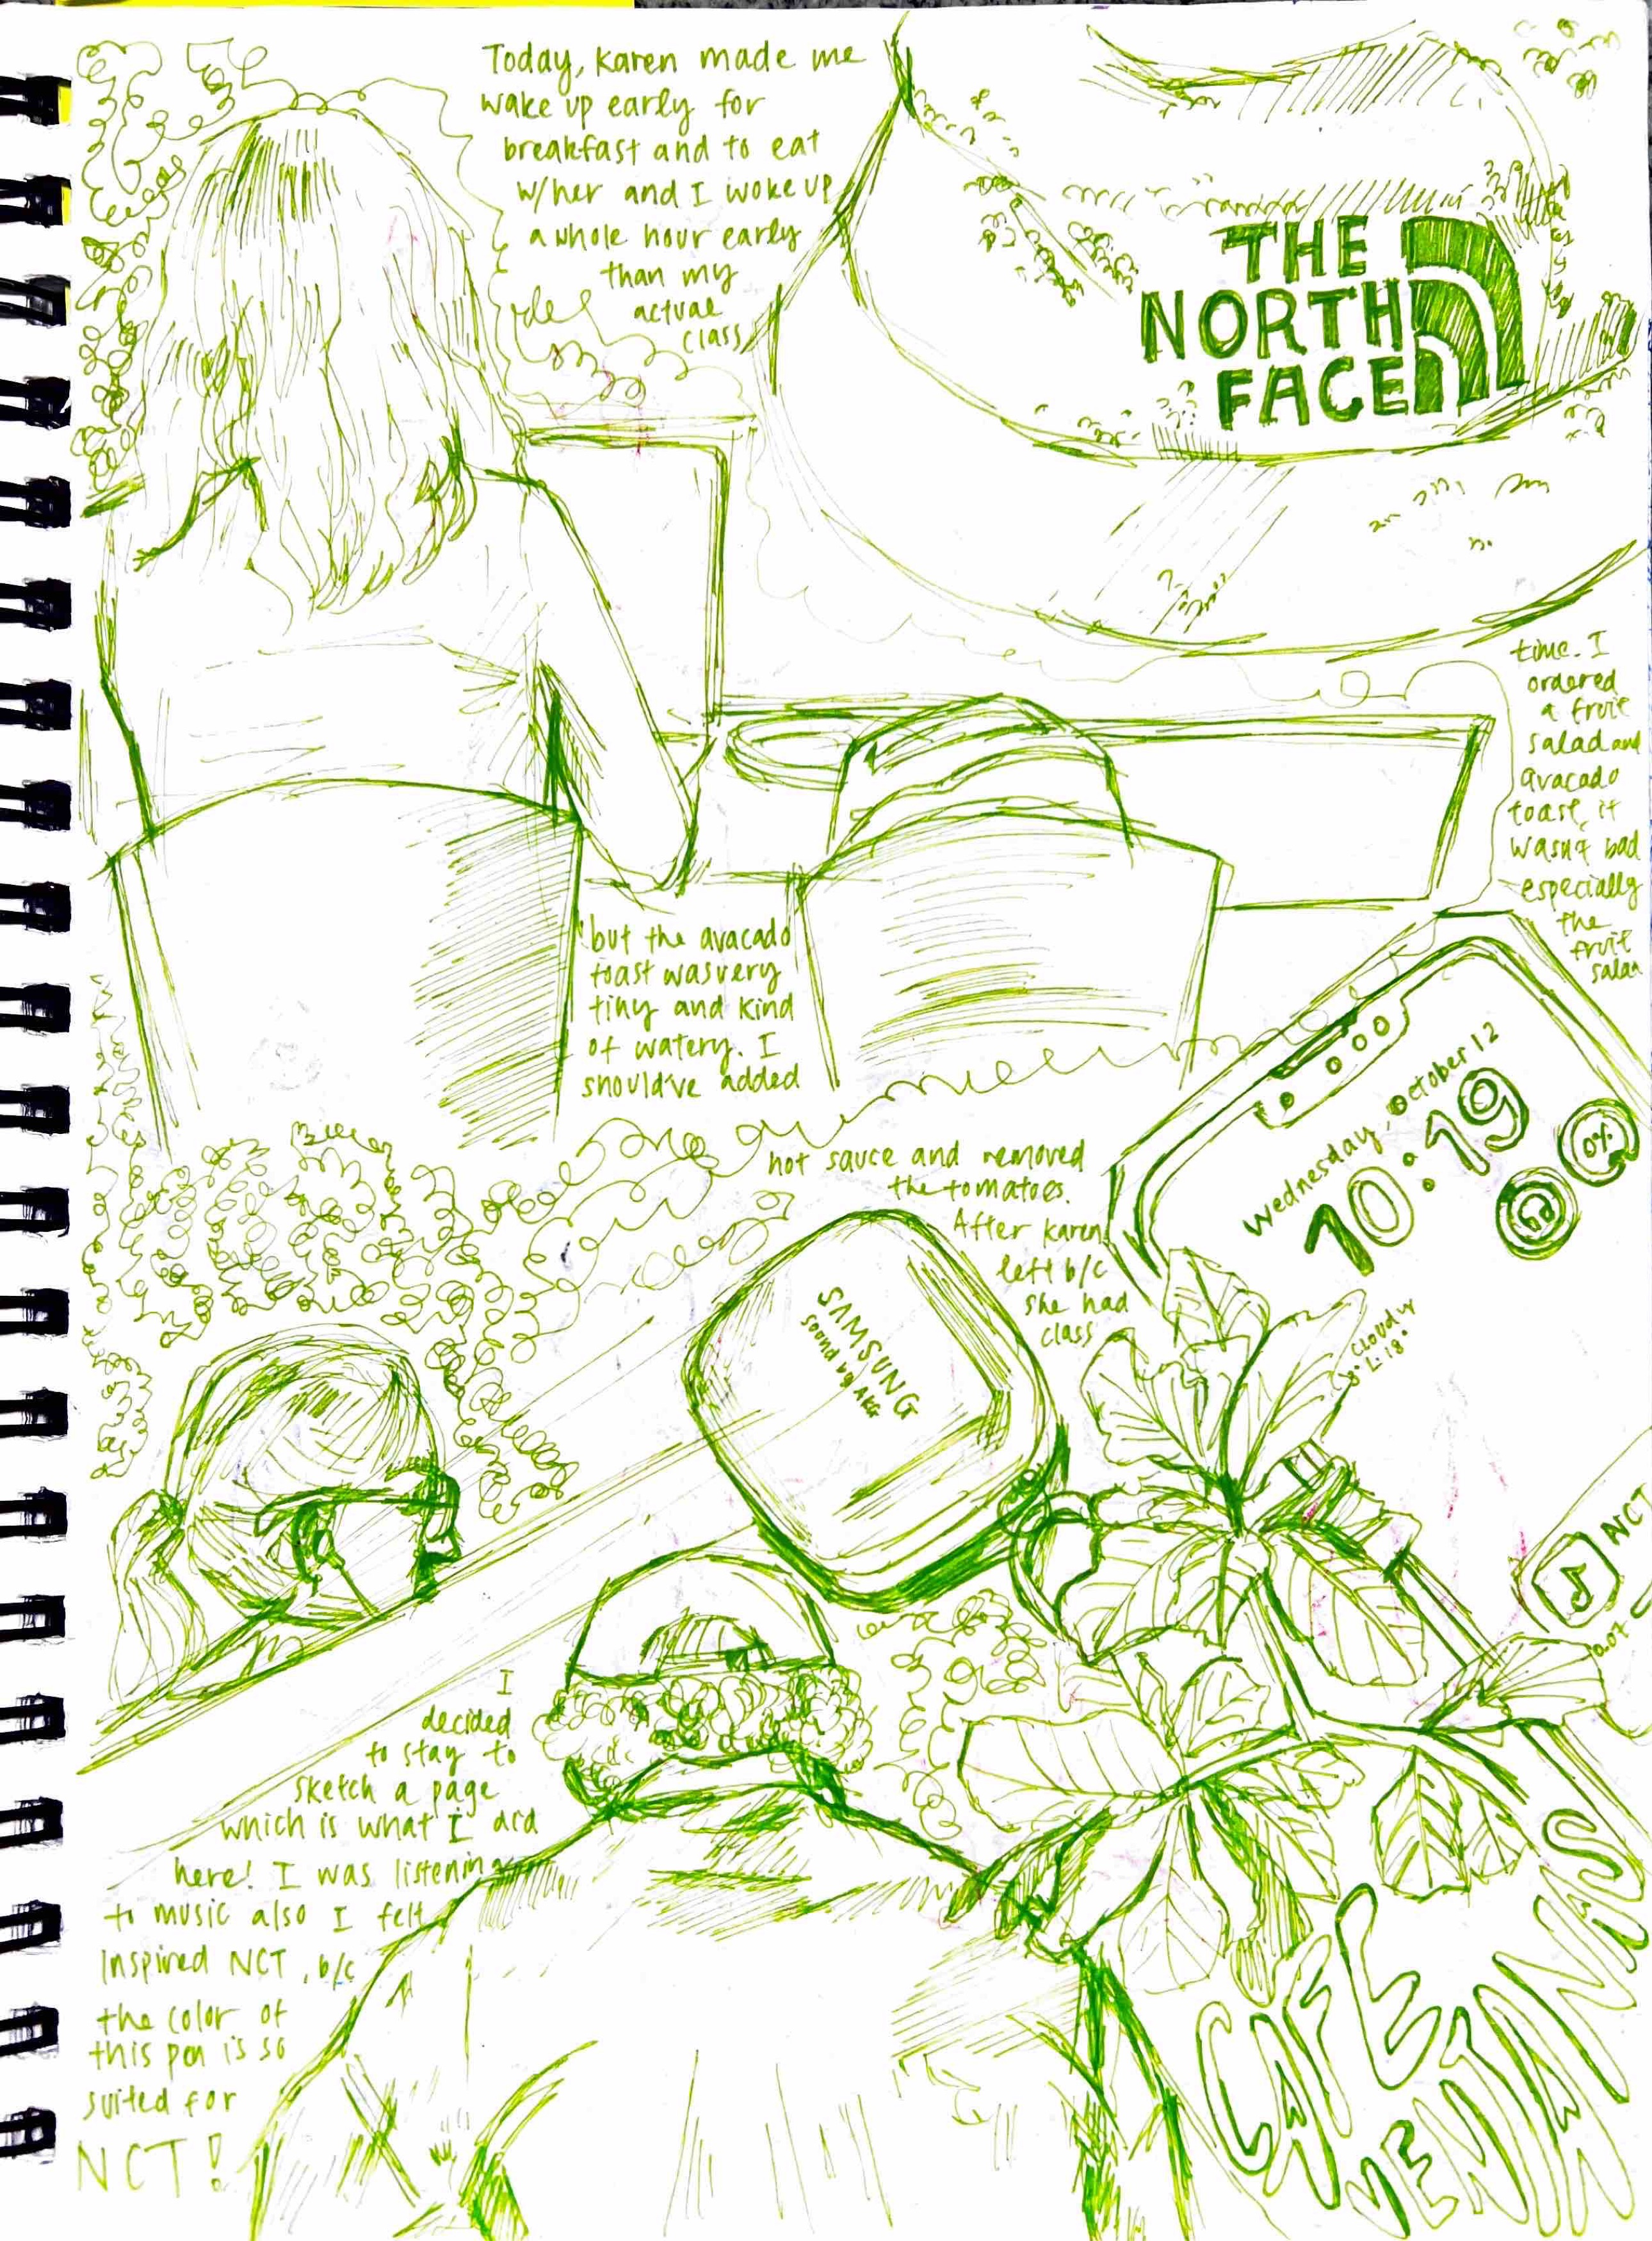 Today, Karen made me
wake up early for
breakfast and to eat
w/her and I woke up
a whole hour early
than my
actual
class
THE
NORTH
FACE
time. I
ordered
a fruit
salad and
avacado
toast, it
wasn't bad
especially
the
fruit
salad
but the avacado
toast was very
tiny and kind
of watery. I
should've added
hot sauce and removed
the tomatoes.
After Karen
left b/c
she had
class
Wednesday, October 12
10:19
0%
Cloudy
SAMSUNG
Sound by AKG
NCT
0:07
I
decided
to stay to
sketch a page
which is what I did
here! I was listening
to music also I felt
inspired NCT, b/c
the color of
this pen is so
suited for
NCT!
CAFE
VENTANAS